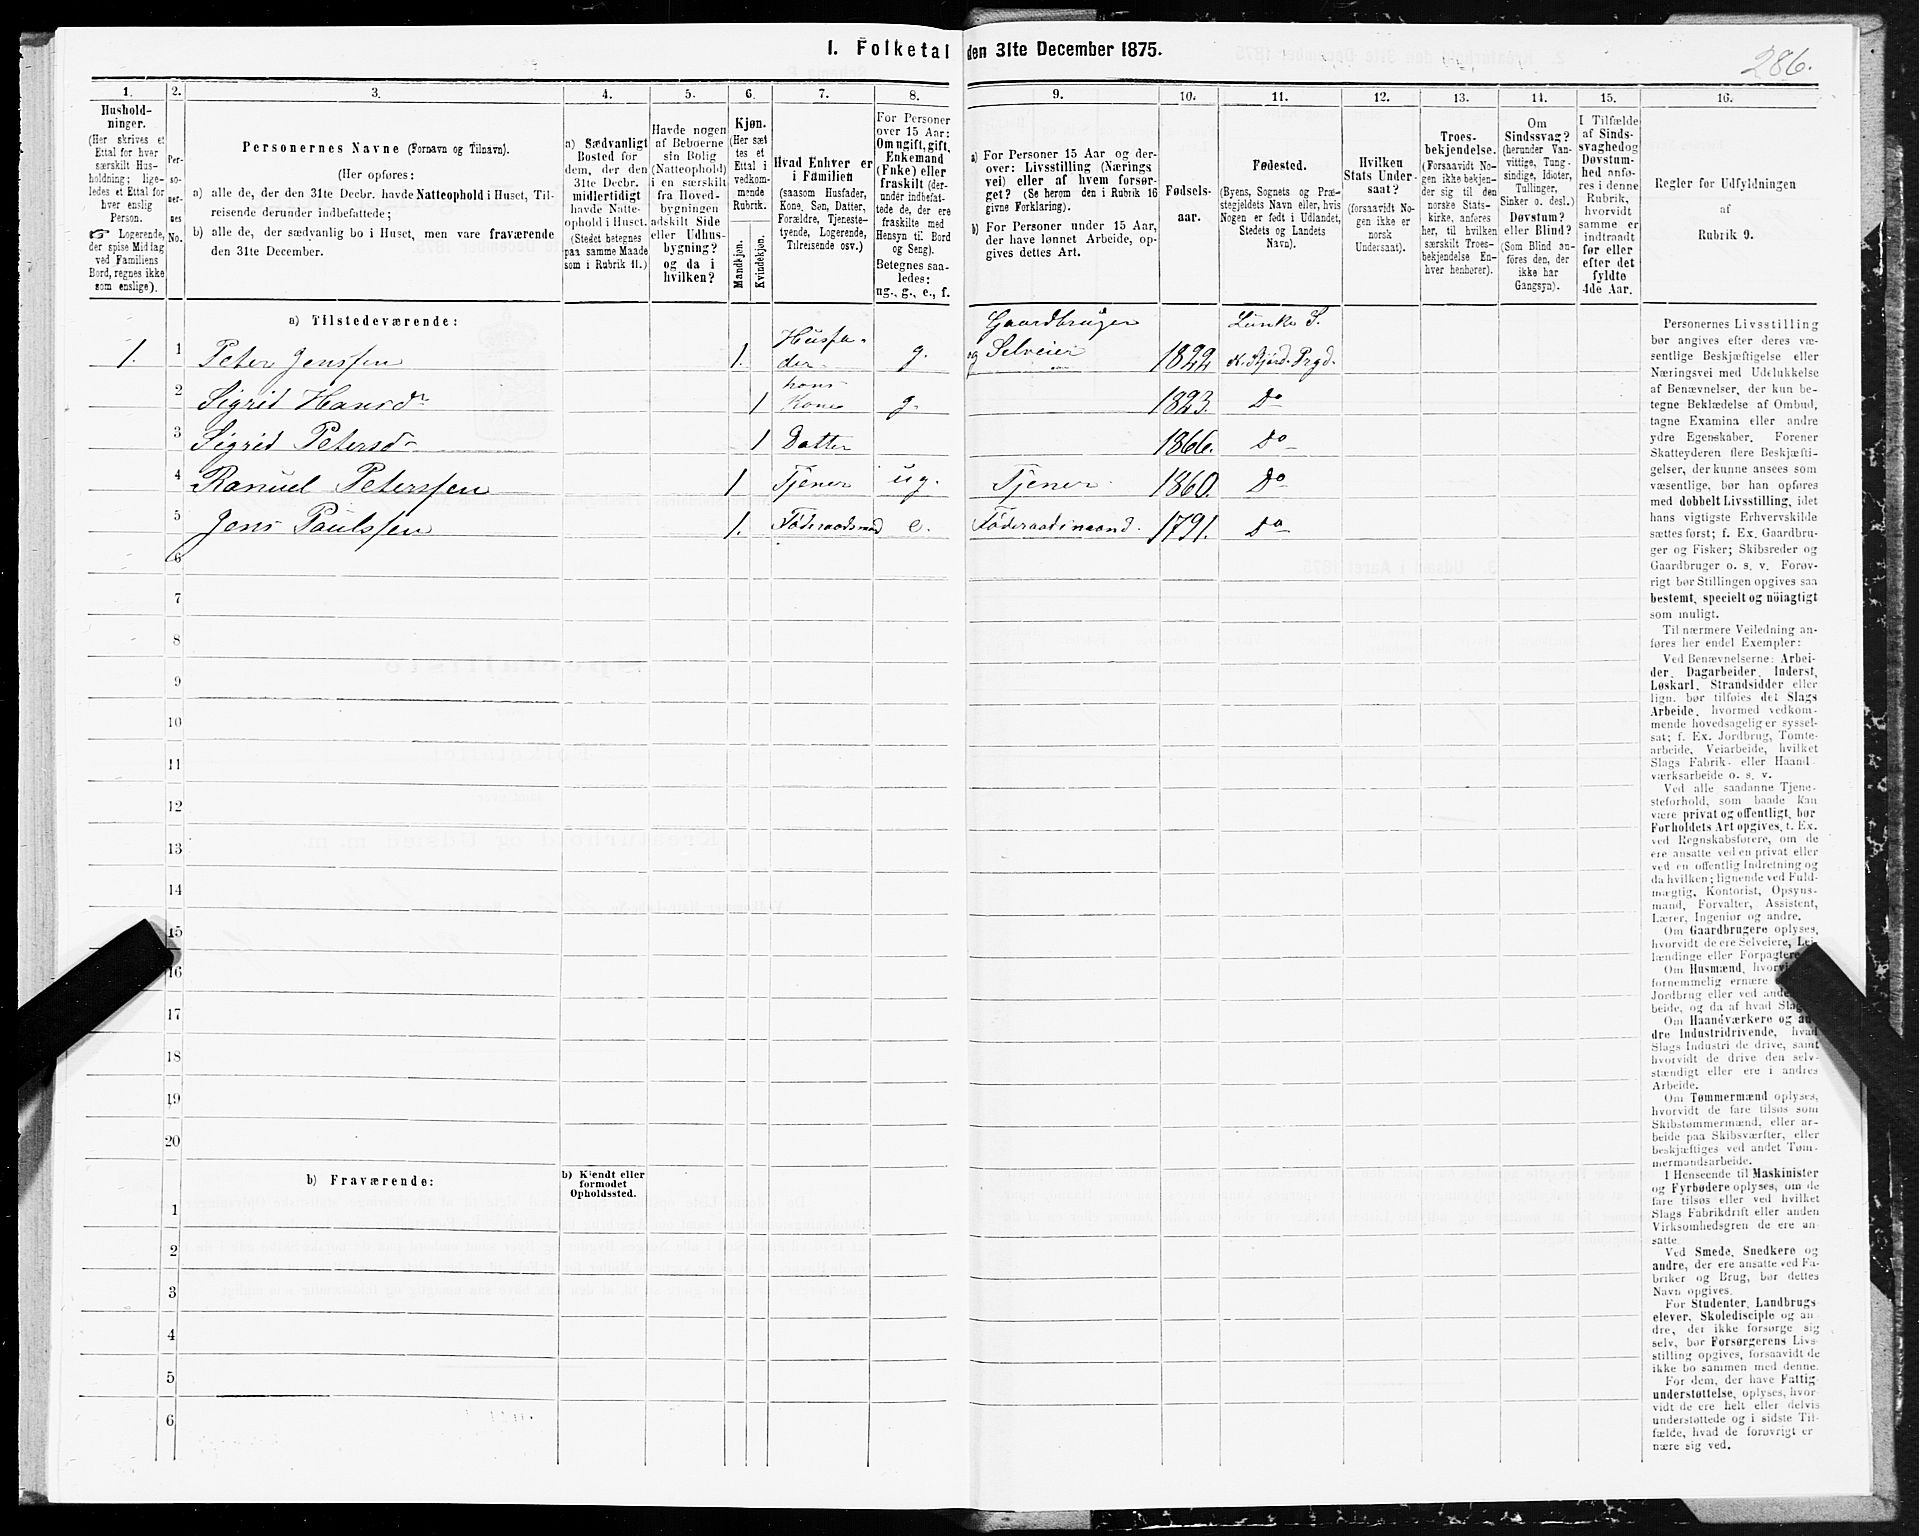 1. Folketal den 31te December 1875.
286.
1.
2.
3.
4.
5.
6.
7.
8.
9.
10.
11.
12.
13.
14.
15.
16.
Hushold-
ninger.
(Her skrives et
Ettal for hver
særskilt Hus-
holdning; lige-
ledes et Ettal for
hver enslig
Person.
☞ Logerende,
der spise Middag
ved Familiens
Bord, regnes ikke
som enslige).
Per-
so-
ner-
nes
No.
Personernes Navne (Fornavn og Tilnavn).
(Her opføres:
a) alle de, der den 31te Decbr. havde Natteophold i Huset, Til-
reisende derunder indbefattede;
b) alle de, der sædvanlig bo i Huset, men vare fraværende
den 31te December.
a) Sædvanligt
Bosted for
dem, der den
31te Decbr.
midlertidigt
havde Natte-
ophold i Huset.
(Stedet betegnes
paa samme Maade
som i Rubrik 11.)
Havde nogen
af Beboerne
sin Bolig
(Natteophold)
i en særskilt
fra Hoved-
bygningen
adskilt Side
eller Udhus-
bygning?
og da i
hvilken?
Kjøn.
(Her sæt
tes et
Ettal i
vedkom-
mende
Rubrik.
Mandkjøn.
Kvindekjøn.
Hvad Enhver er
i Familien
(saasom Husfader,
Kone, Søn, Datter,
Forældre, Tjeneste-
tyende, Logerende,
Tilreisende osv.)
For Personer
over 15 Aar:
Om ugift, gift,
Enkemand
(Enke) eller
fraskilt (der-
under indbefat-
tede de, der ere
fraskilte med
Hensyn til Bord
og Seng).
Betegnes saa-
ledes:
ug., g., e., f.
a) For Personer 15 Aar og der-
over: Livsstilling (Nærings
vei) eller af hvem forsør-
get? (Se herom den i Rubrik 16
givne Forklaring).
b) For Personer under 15 Aar,
der have lønnet Arbeide, op-
gives dettes Art.
Fødsels-
aar.
Fødested.
(Byens, Sognets og Præ-
stegjeldets Navn eller, hvis
Nogen er født i Udlandet,
Stedets og Landets
Navn).
Hvilken
Stats Under-
saat?
(forsaavidt No-
gen ikke er
norsk
Undersaat).
Troes-
bekjendelse.
(Forsaavidt No-
gen ikke bekjen-
der sig til den
norske Stats-
kirke, anføres
her, til hvilken
særskilt Troes-
bekjendelse En-
hver henhører).
Om
Sindssvag?
(herunder Van-
vittige, Tung-
sindige, Idioter,
Tullinger,
Sinker o. desl.)
Døvstum?
eller Blind?
(Som Blind an-
føres den, der
ikke har
Gangsyn).
I Tilfælde
af Sinds-
svaghed og
Døvstum-
hed anfø-
res i denne
Rubrik,
hvorvidt
samme er
indtraadt
før eller
efter det
fyldte
4de Aar.
Regler for Udfyldningen
af
Rubrik 9.
a) Tilstedeværende:
1. 1 Peter Jenssen 1. Husfa-
der g. Gaardbruger
og Selveier 1822 Lunke S.
K. Stjørd. Prgd.
2 Sigrid Hansdr 1 hans
Kone g. 1823. Do
3 Sigrid Petersd 1 Datter 1866. Do
4 Ranuel Peterssen 1 Tjener ug. Tjener 1860. Do
5 Jens Paulssen 1. Føderaadsmd e. Føderaadsmand. 1791. Do
6
7
8
9
10
11
12
13
14
15
16
17
18
19
20
b) Fraværende:
b) Kjendt eller
formodet
Opholdssted.
1
2
3
4
5
6
Personernes Livsstilling
bør angives efter deres væ-
sentlige Beskjæftigelse eller
Næringsvei med Udelukkelse
af Benævnelser, der kun be-
tegne Beklædelse af Ombud,
tagne Examina eller andre
ydre Egenskaber. Forener
Skatteyderen flere Beskjæfti-
gelser, der kunne ansees som
væsentlige, bør han opføres
med dobbelt Livsstilling, idet
hans vigtigste Erhvervskilde
sættes først; f. Ex. Gaardbru-
ger og Fisker; Skibsreder og
Gaardbruger o. s. v. Forøv-
rigt bør Stillingen opgives saa
bestemt, specielt og nöiagtigt
som muligt.
Til nærmere Veiledning an-
føres her endel Exempler:
Ved Benævnelserne: Arbei-
der, Dagarbeider, Inderst,
Løskarl, Strandsidder eller
lign. bør tilføies det Slags
Arbeide, hvormed vedkom-
mende hovedsagelig er syssel-
sat; f. Ex. Jordbrug, Tomte-
arbeide, Veiarbeide, hvilket
Slags Fabrik- eller Haand-
værksarbeide o. s. v.
Ved alle saadanne Tjene-
steforhold, som baade kan
være privat og offentligt, bør
Forholdets Art opgives, t. Ex.
ved Regnskabsførere, om de
ere ansatte ved en privat eller
ved en offentlig Indretning og
da hvilken; lignende ved Fuld-
mægtig, Kontorist, Opsyns-
mand, Forvalter, Assistent,
Lærer, Ingeniør og andre.
Om Gaardbrugere oplyses,
hvorvidt de ere Selveiere, Lei-
lændinge eller Forpagtere
Om Husmænd,
fornemmelig ernære
Jordbrug eller ved
beide, og da af hvad
Om Haandværkere og an-
dre Industridrivende, hvad
Slags Industri de drive, samt
hvorvidt de drive den selv-
stændigt eller ere i andres
Arbeide.
Om Tømmermænd oplyses,
hvorvidt de fare tilsøs som
Skibstømmermænd, eller ar-
beide paa Skibsværfter, eller
beskjæftiges ved andet Tøm-
mermandsarbeide.
I Henseende til Maskinister
og Fyrbødere oplyses, om de
fare tilsøs eller ved hvilket
Slags Fabrikdrift eller anden
Virksomhedsgren de ere an-
satte.
Ved Smede, Snedkere og
andre, der ere ansatte ved Fa-
briker og Brug, bør dettes
Navn opgives.
For Studenter, Landbrugs-
elever, Skoledisciple og an-
dre, der ikke forsørge sig
selv, bør Forsørgerens Livs-
stilling opgives, forsaavidt de
ikke bo sammen med denne.
For dem, der have Fattig-
understøttelse, oplyses, hvor-
vidt de ere helt eller delvis
understøttede og i sidste Til-
fælde, hvad de forøvrigt er
nære sig ved.